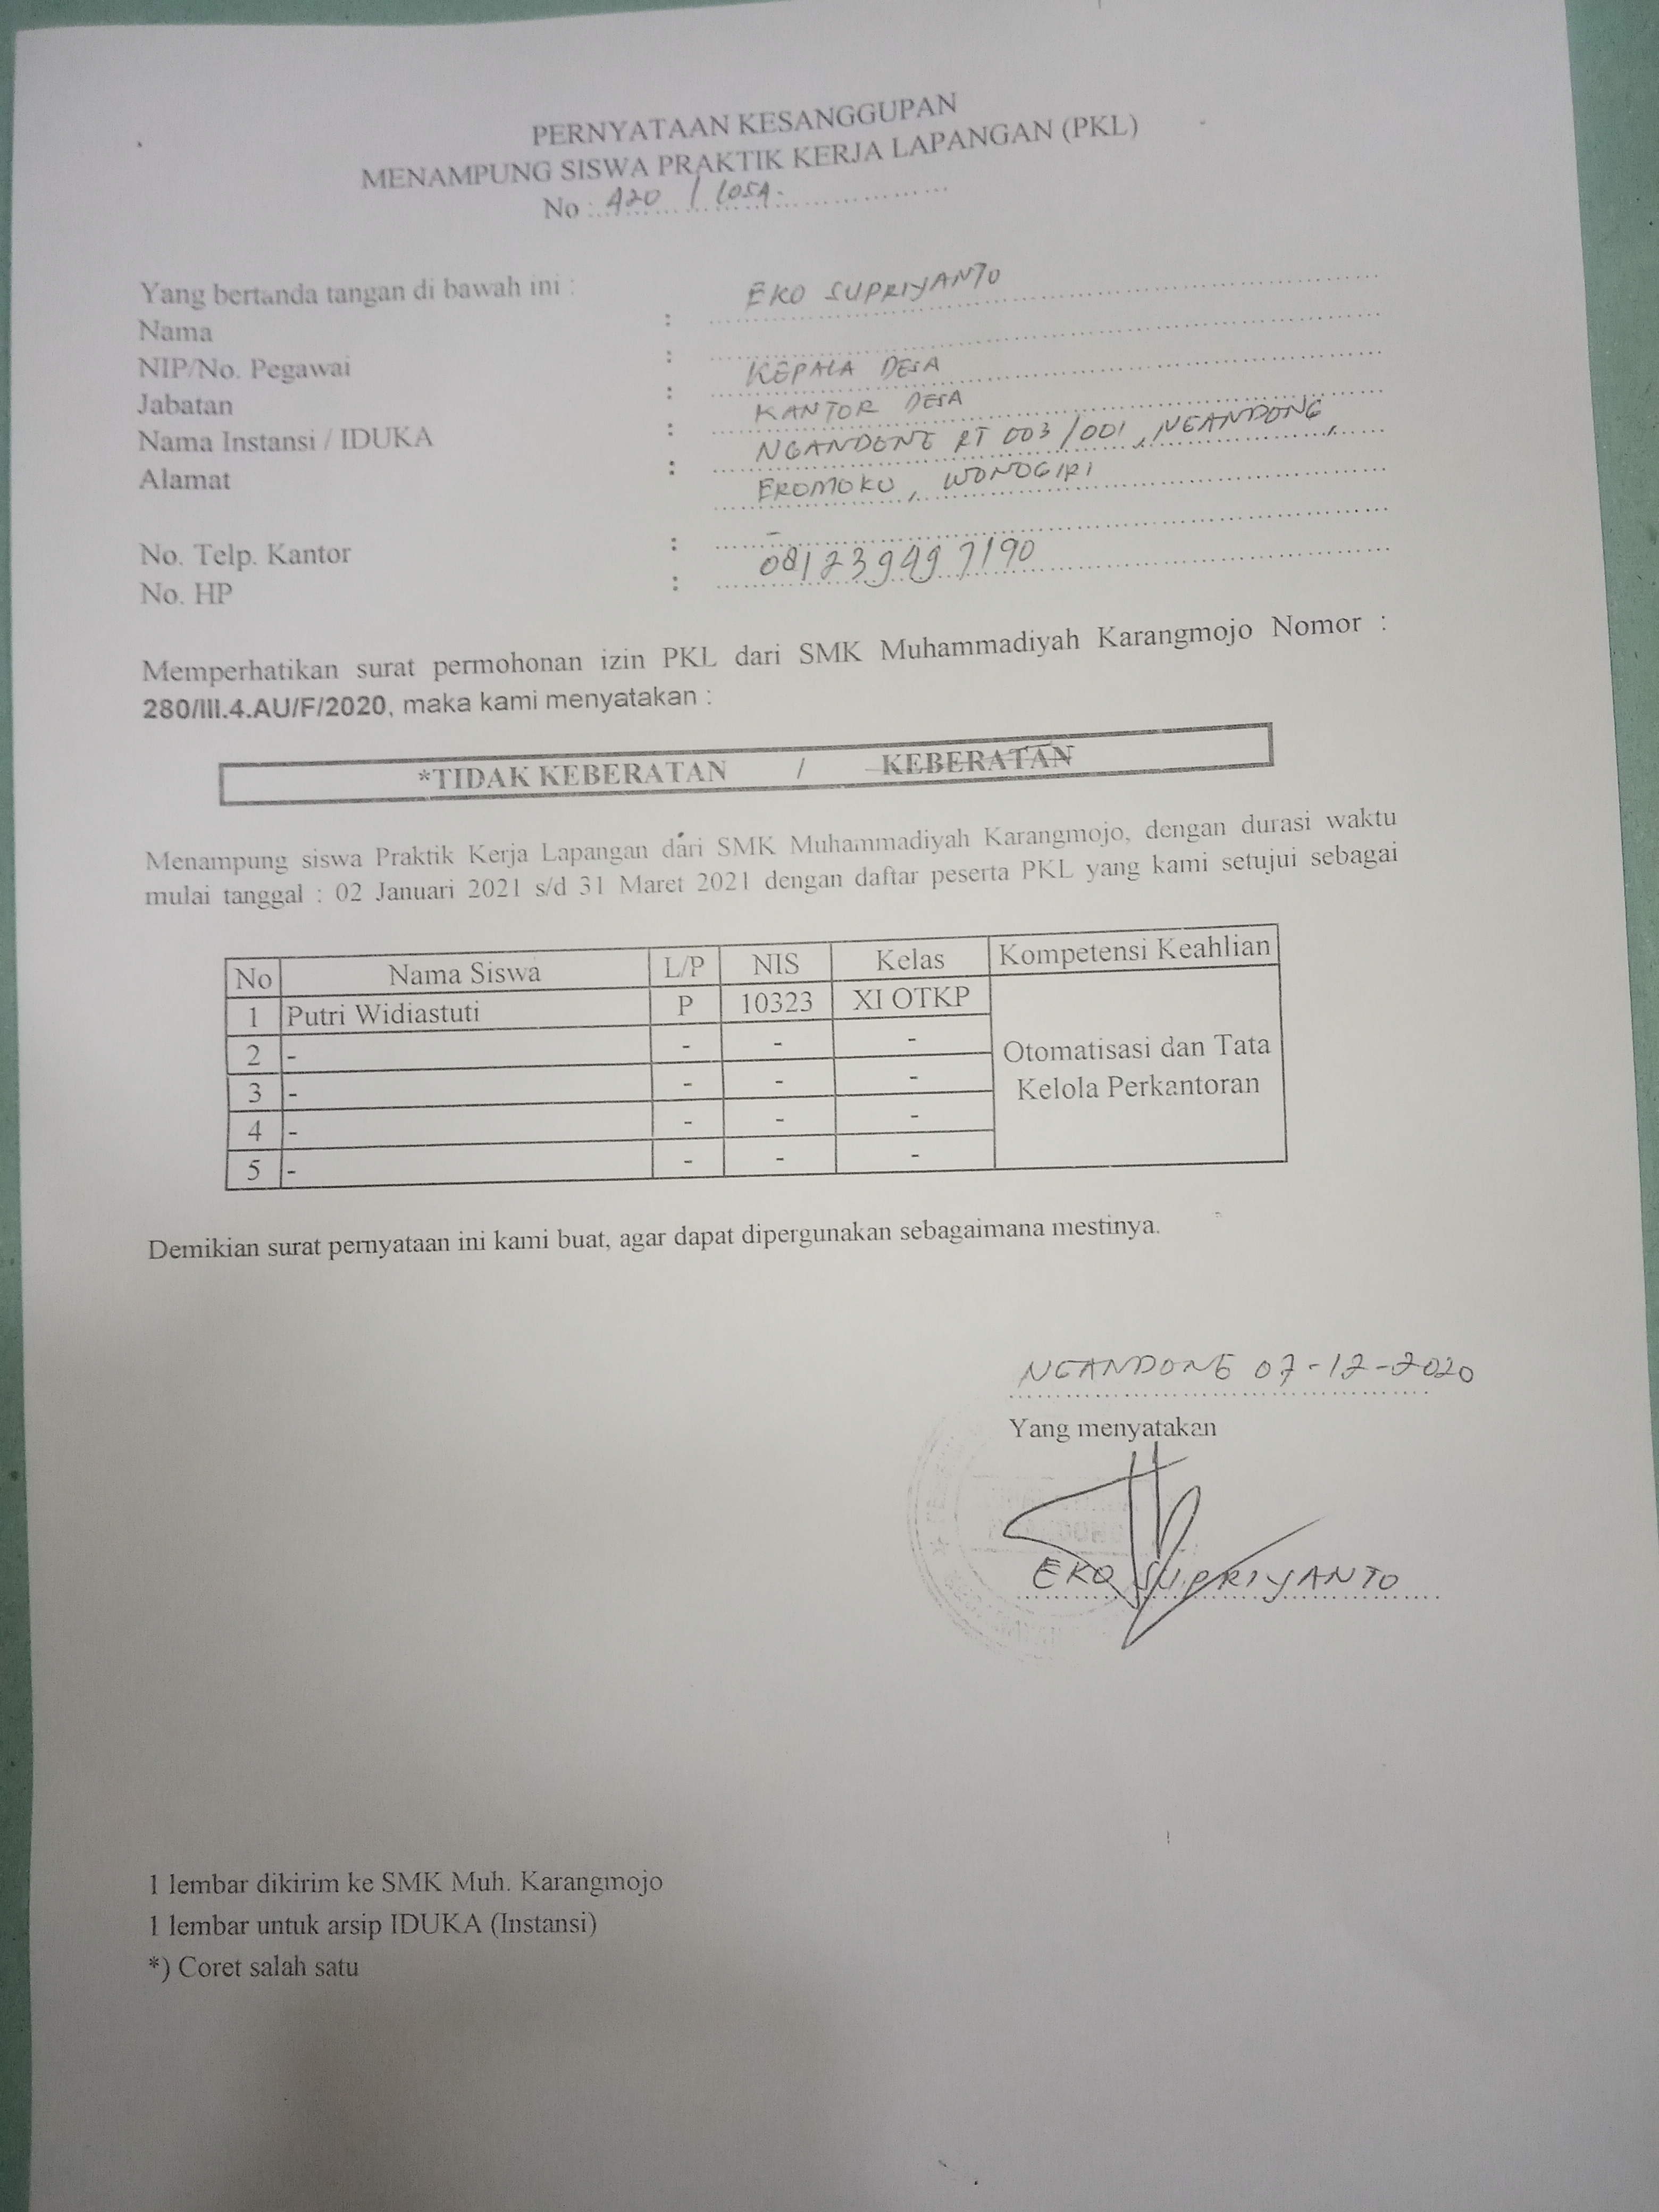 PERNYATAAN KESANGGUPAN
MENAMPUNG SISWA PRAKTIK KERJA LAPANGAN (PKL)
No : 420 / 1054
Yang bertanda tangan di bawah ini :
Nama : EKO SUPRIYANTO
NIP/No. Pegawai :
Jabatan : KEPALA DESA
Nama Instansi / IDUKA : KANTOR DESA
Alamat : NGANDONG RT 003/001, NGANDONG,
EROMOKO, WONOGIRI
No. Telp. Kantor : -
No. HP : 081239497190
Memperhatikan surat permohonan izin PKL dari SMK Muhammadiyah Karangmojo Nomor :
280/III.4.AU/F/2020, maka kami menyatakan :
*TIDAK KEBERATAN / KEBERATAN
Menampung siswa Praktik Kerja Lapangan dari SMK Muhammadiyah Karangmojo, dengan durasi waktu
mulai tanggal : 02 Januari 2021 s/d 31 Maret 2021 dengan daftar peserta PKL yang kami setujui sebagai
No Nama Siswa L/P NIS Kelas Kompetensi Keahlian
1 Putri Widiastuti P 10323 XI OTKP
2 - - - -
Otomatisasi dan Tata
3 - - - -
Kelola Perkantoran
4 - - - -
5 - - - -
Demikian surat pernyataan ini kami buat, agar dapat dipergunakan sebagaimana mestinya.
NGANDONG 07-12-2020
Yang menyatakan
EKO SUPRIYANTO
1 lembar dikirim ke SMK Muh. Karangmojo
1 lembar untuk arsip IDUKA (Instansi)
*) Coret salah satu